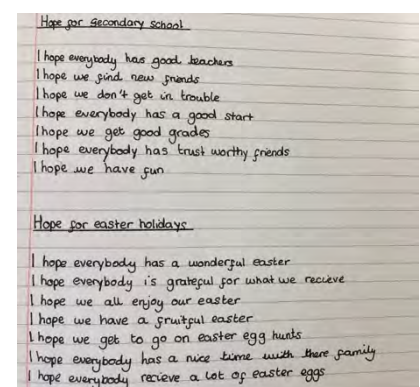 Hope for Secondary school
I hope everybody has good teachers
I hope we find new friends
I hope we don't get in trouble
I hope everybody has a good start
I hope we get good grades
I hope everybody has trust worthy friends
I hope we have fun
Hope for easter holidays
I hope everybody has a wonderful easter
I hope everybody is grateful for what we recieve
I hope we all enjoy our easter
I hope we have a fruitful easter
I hope we get to go on easter egg hunts
I hope everybody has a nice time with there family
I hope everybody recieve a lot of easter eggs